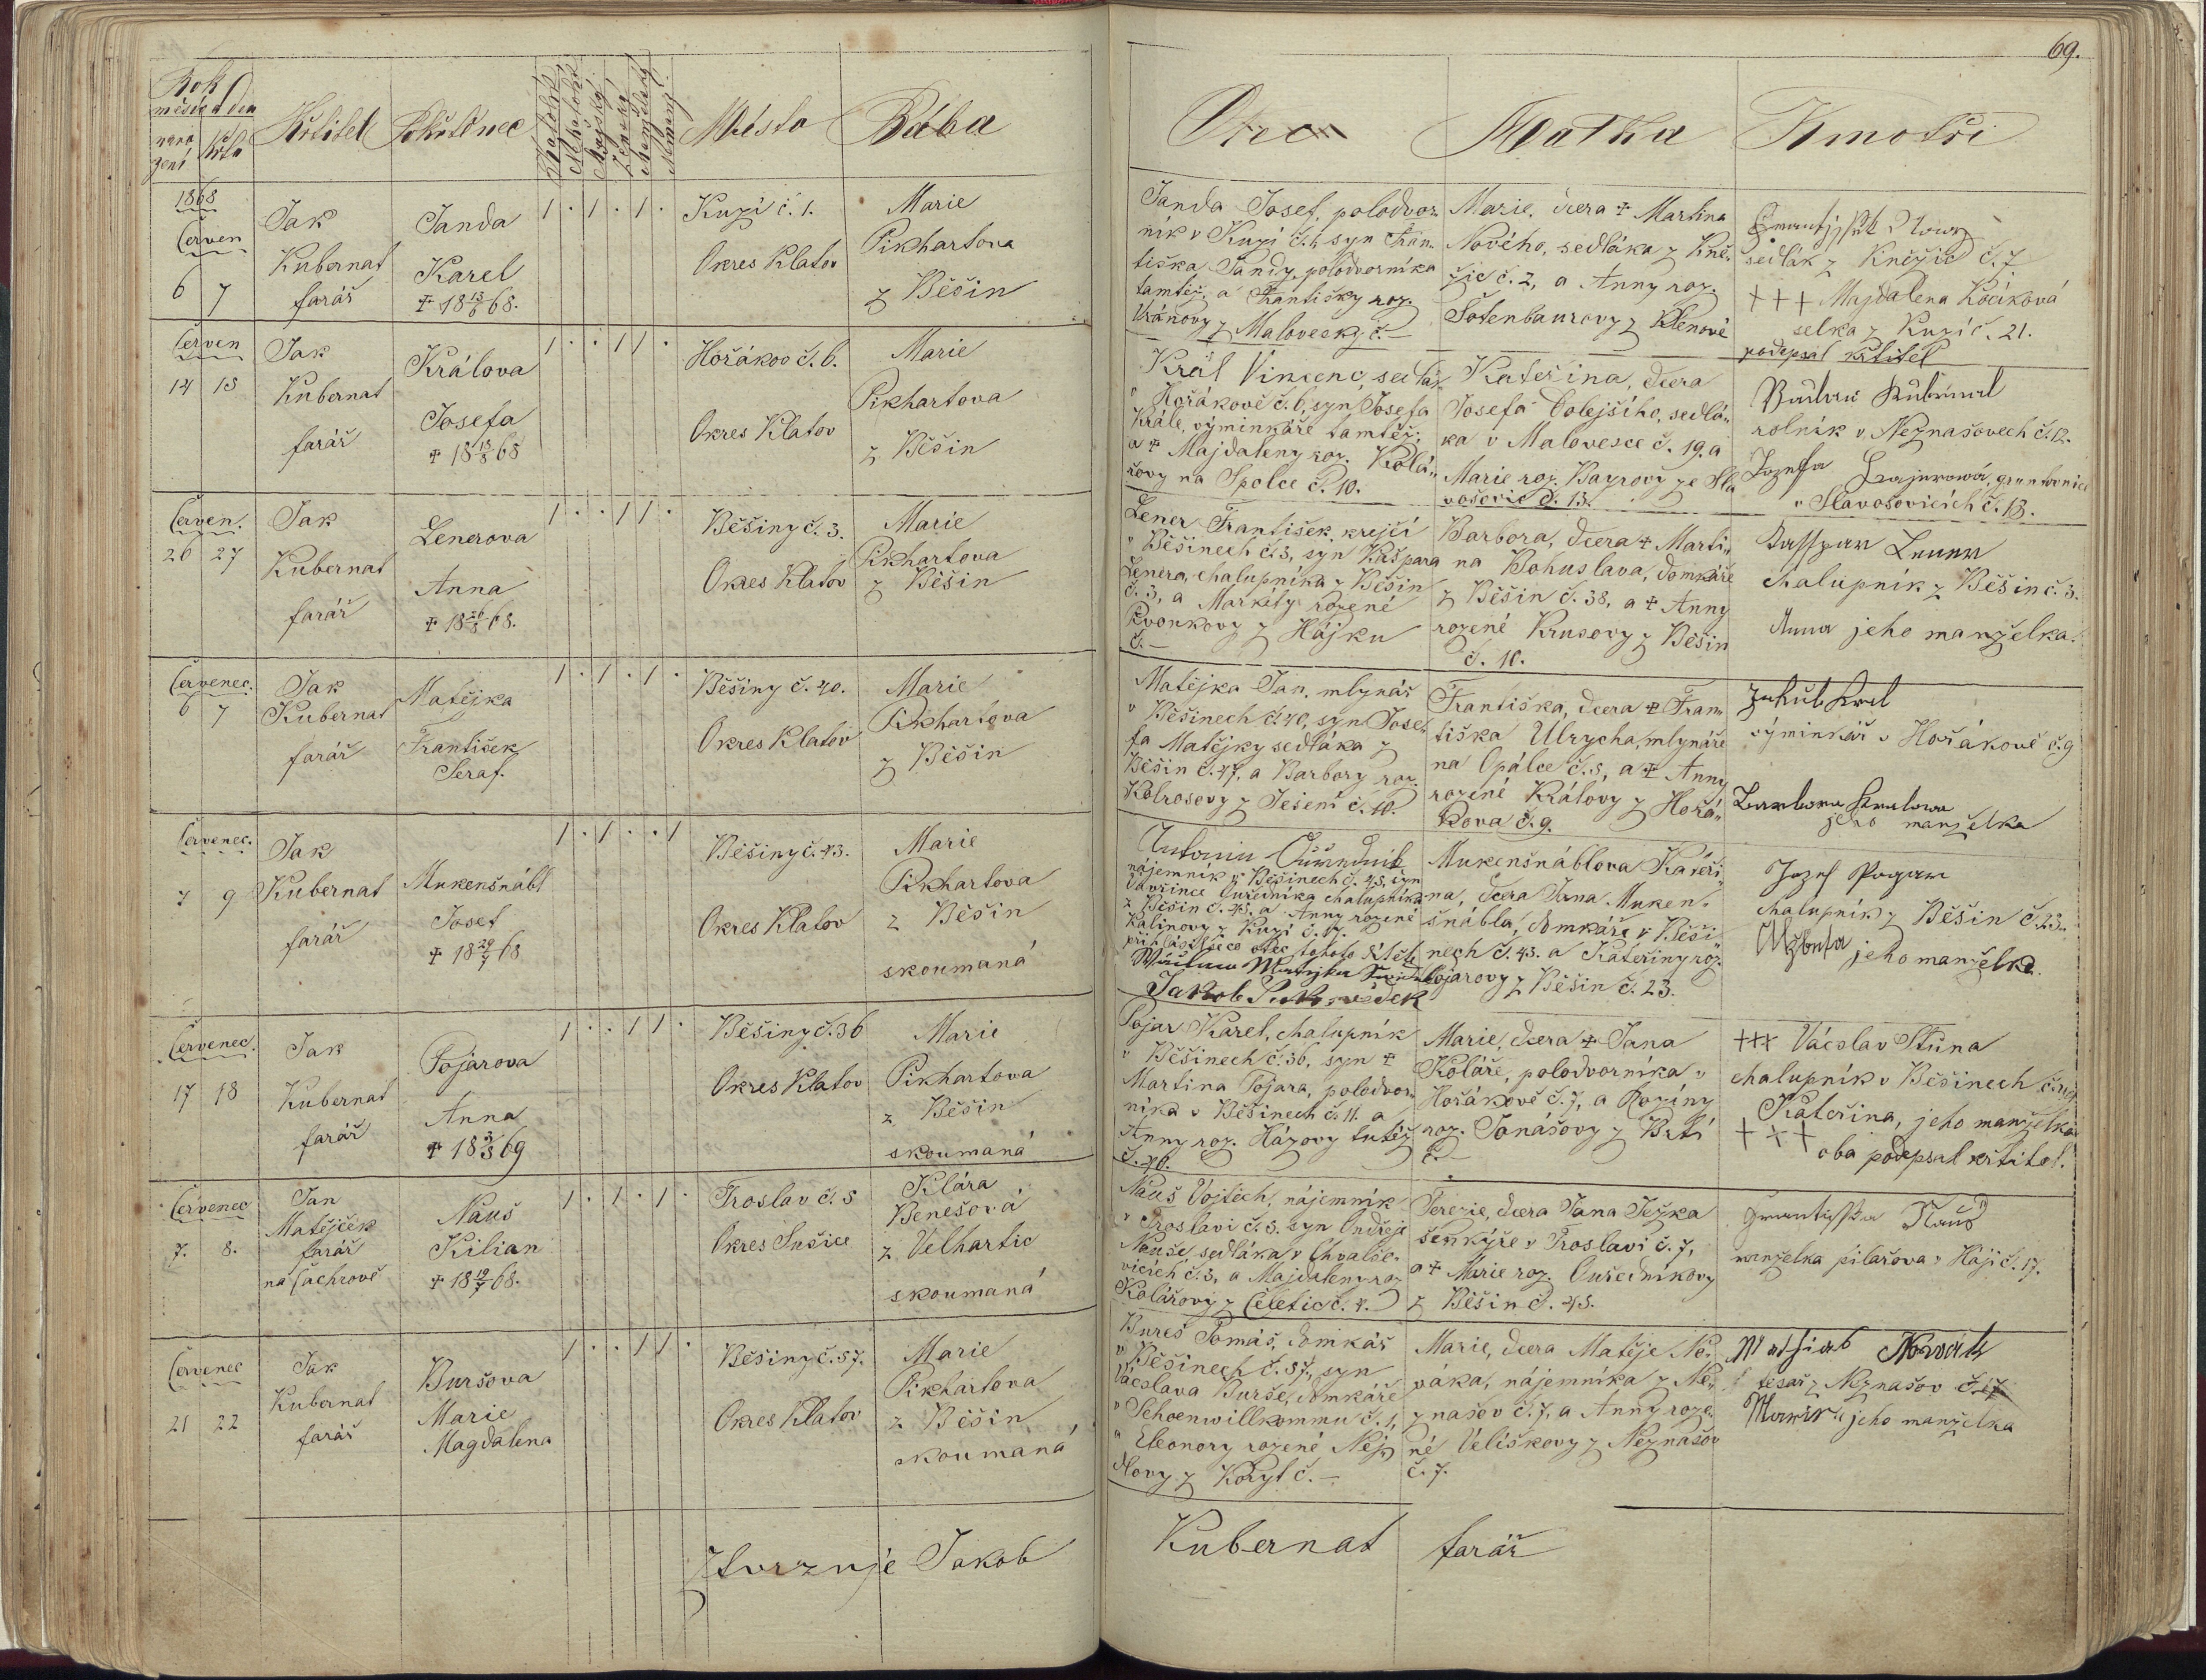 69.
Rok
měsíc a den
naro
zení
křtu
Křtitel
Pokřtěnec
Katolík
Nekatolík
Mužský
Ženský
Manželský
Nemanž.
Místo
Bába
Otec
Matka
Kmotři
1868
Červen
6 7
Jak
Kubernat
farář
Janda
Karel
✝ 18 13/6 68.
1 . 1 . 1 .
Kuzí č. 1.
Okres Klatov
Marie
Pikhartova
z Běšin
Janda Josef, polodvor-
ník v Kuzí č. 1, syn Fran-
tiška Jandy, polodvorníka
tamtéž, a Františky roz.
Vránovy z Malovesky č. –
Marie, dcera ✝ Martina
Nového, sedláka z Kně-
žic č. 2, a Anny roz.
Šotenbaurovy z Klenové
sedlák z Kněžic č. 7
+++ Majdalena Kočíková
selka z Kuzí č. 21.
podepsal křtitel
Červen
14 15
Jak
Kubernat
farář
Králova
Josefa
✝ 18 13/8 68
1 . . 1 1 .
Hořákov č. 6.
Okres Klatov
Marie
Pikhartova
z Běšin
Král Vincenc, sedlák
v Hořákově č. 6, syn Josefa
Krále, výminkáře tamtéž,
a ✝ Majdaleny roz. Kolá-
řovy na Spolce č. 10.
Kateřina, dcera
Josefa Colejšího, sedlá-
ka v Malovesce č. 19. a
Marie roz. Bayrovy ze Sla
vošovic č. 13.
rolník v Neznašovech č. 12.
Jozefa gruntovnice
v Slavošovicích č. 13.
Červen.
26 27
Jak
Kubernat
farář
Lenerova
Anna
✝ 18 26/8 68.
1 . . 1 1 .
Běšiny č. 3.
Okres Klatov
Marie
Pikhartova
z Běšin
Lener František, krejčí
v Běšinech č. 3, syn Kašpara
Lenera, chalupníka z Běšin
č. 3, a Markéty rozené
Kvonkovy z Hájku
č. –
Barbora, dcera ✝ Marti-
na Bohuslava, domkáře
z Běšin č. 38, a ✝ Anny
rozené Krusovy z Běšin
č. 10.
Kasspar Lenner
chalupník z Běšin č. 3.
Anna jeho manželka.
Červenec.
6 7
Jak
Kubernat
farář
Matějka
František
Seraf.
1 . 1 . 1 .
Běšiny č. 40.
Okres Klatov
Marie
Pikhartova
z Běšin
Matějka Jan, mlynář
v Běšinech č. 40, syn Jose-
fa Matějky sedláka z
Běšin č. 47, a Barbory roz.
Kolrosovy z Ješení č. 10.
Františka, dcera ✝ Fran-
tiška Ulrycha, mlynáře
na Opálce č. 5, a ✝ Anny
rozené Královy z Hořá-
kova č. 9.
Jakub Kral
výminkář v Hořákově č. 9
Barbora Kralowa
jeho manželka
Červenec.
7 9
Jak
Kubernat
farář
Mukenšnábl
Josef
✝ 18 29/7 68
1 . 1 . . 1
Běšiny č. 43.
Okres Klatov
Marie
Pikhartova
z Běšin
skoumaná
Antonin Ouředník
nájemník v Běšinech č. 45, syn
Vavřince Ouředníka chalupníka
z Běšin č. 45, a Anny rozené
Kalinovy z Kuzí č. 17.
přihlásil se co otec tohoto dítěte
Jakob
Mukenšnáblova Kateři-
na, dcera Jana Muken-
šnábla, domkáře v Běši-
nech č. 43. a Kateřiny roz.
Pojarovy z Běšin č. 23.
Jozef Pogar
chalupník z Běšin č. 23.
Alžbeta jeho manželka.
Červenec.
17 18
Jak
Kubernat
farář
Pojarova
Anna
✝ 18 3/3 69
1 . . 1 1 .
Běšiny č. 36
Okres Klatov
Marie
Pikhartova
z Běšin
skoumaná
Pojar Karel, chalupník
v Běšinech č. 36, syn ✝
Martina Pojara, polodvor-
níka v Běšinech č. 11. a
Anny roz. Házovy tutéž
č. 46.
Marie, dcera ✝ Jana
Koláře, polodvorníka v
Hořákově č. 7, a Rozíny
roz. Jonášovy z Brtí
č. –
+++ Václav Stuna
chalupník v Běšinech
Kateřina, jeho manželka
+++ oba podepsal křtitel.
Červenec
7. 8.
Jan
Matějček
farář
na Čachrově
Nauš
Kilian
✝ 18 19/7 68.
1 . 1 . 1 .
Froslav č. 5
Okres Sušice
Klára
Benešová
z Velhartic
skoumaná
Nauš Vojtěch, nájemník
v Froslavi č. 5. syn Ondřeje
Nauše sedláka v Chvalše-
vicích č. 3, a Majdaleny roz
Kolářovy z Čeletic č. 4.
Terezie, dcera Jana Ježka
šenkýře v Froslavi č. 7,
a ✝ Marie roz. Ouředníkovy
z Běšin č. 45.
Frantisska Nauš
manželka pilařova v Háji č. 17.
Červenec
21 22
Jak
Kubernat
farář
Buršova
Marie
Magdalena
1 . . 1 1 .
Běšiny č. 57.
Okres Klatov
Marie
Pikhartova
z Běšin
skoumaná
Bureš Tomáš, domkář
v Běšinech č. 57, syn
Václava Burše, domkáře
v Schoenwillkommu č. 1,
a Eleonory rozené Nej-
dlovy z Koryt č. –
Marie, dcera Matěje No-
váka, nájemníka z Ne-
znašov č. 7, a Anny roze-
né Veliškovy z Neznašov
č. 7.
Mathias Nowák
tesař z Neznašov č. 17
Marie jeho manželka
Ztvrzuje Jakob Kubernat farář